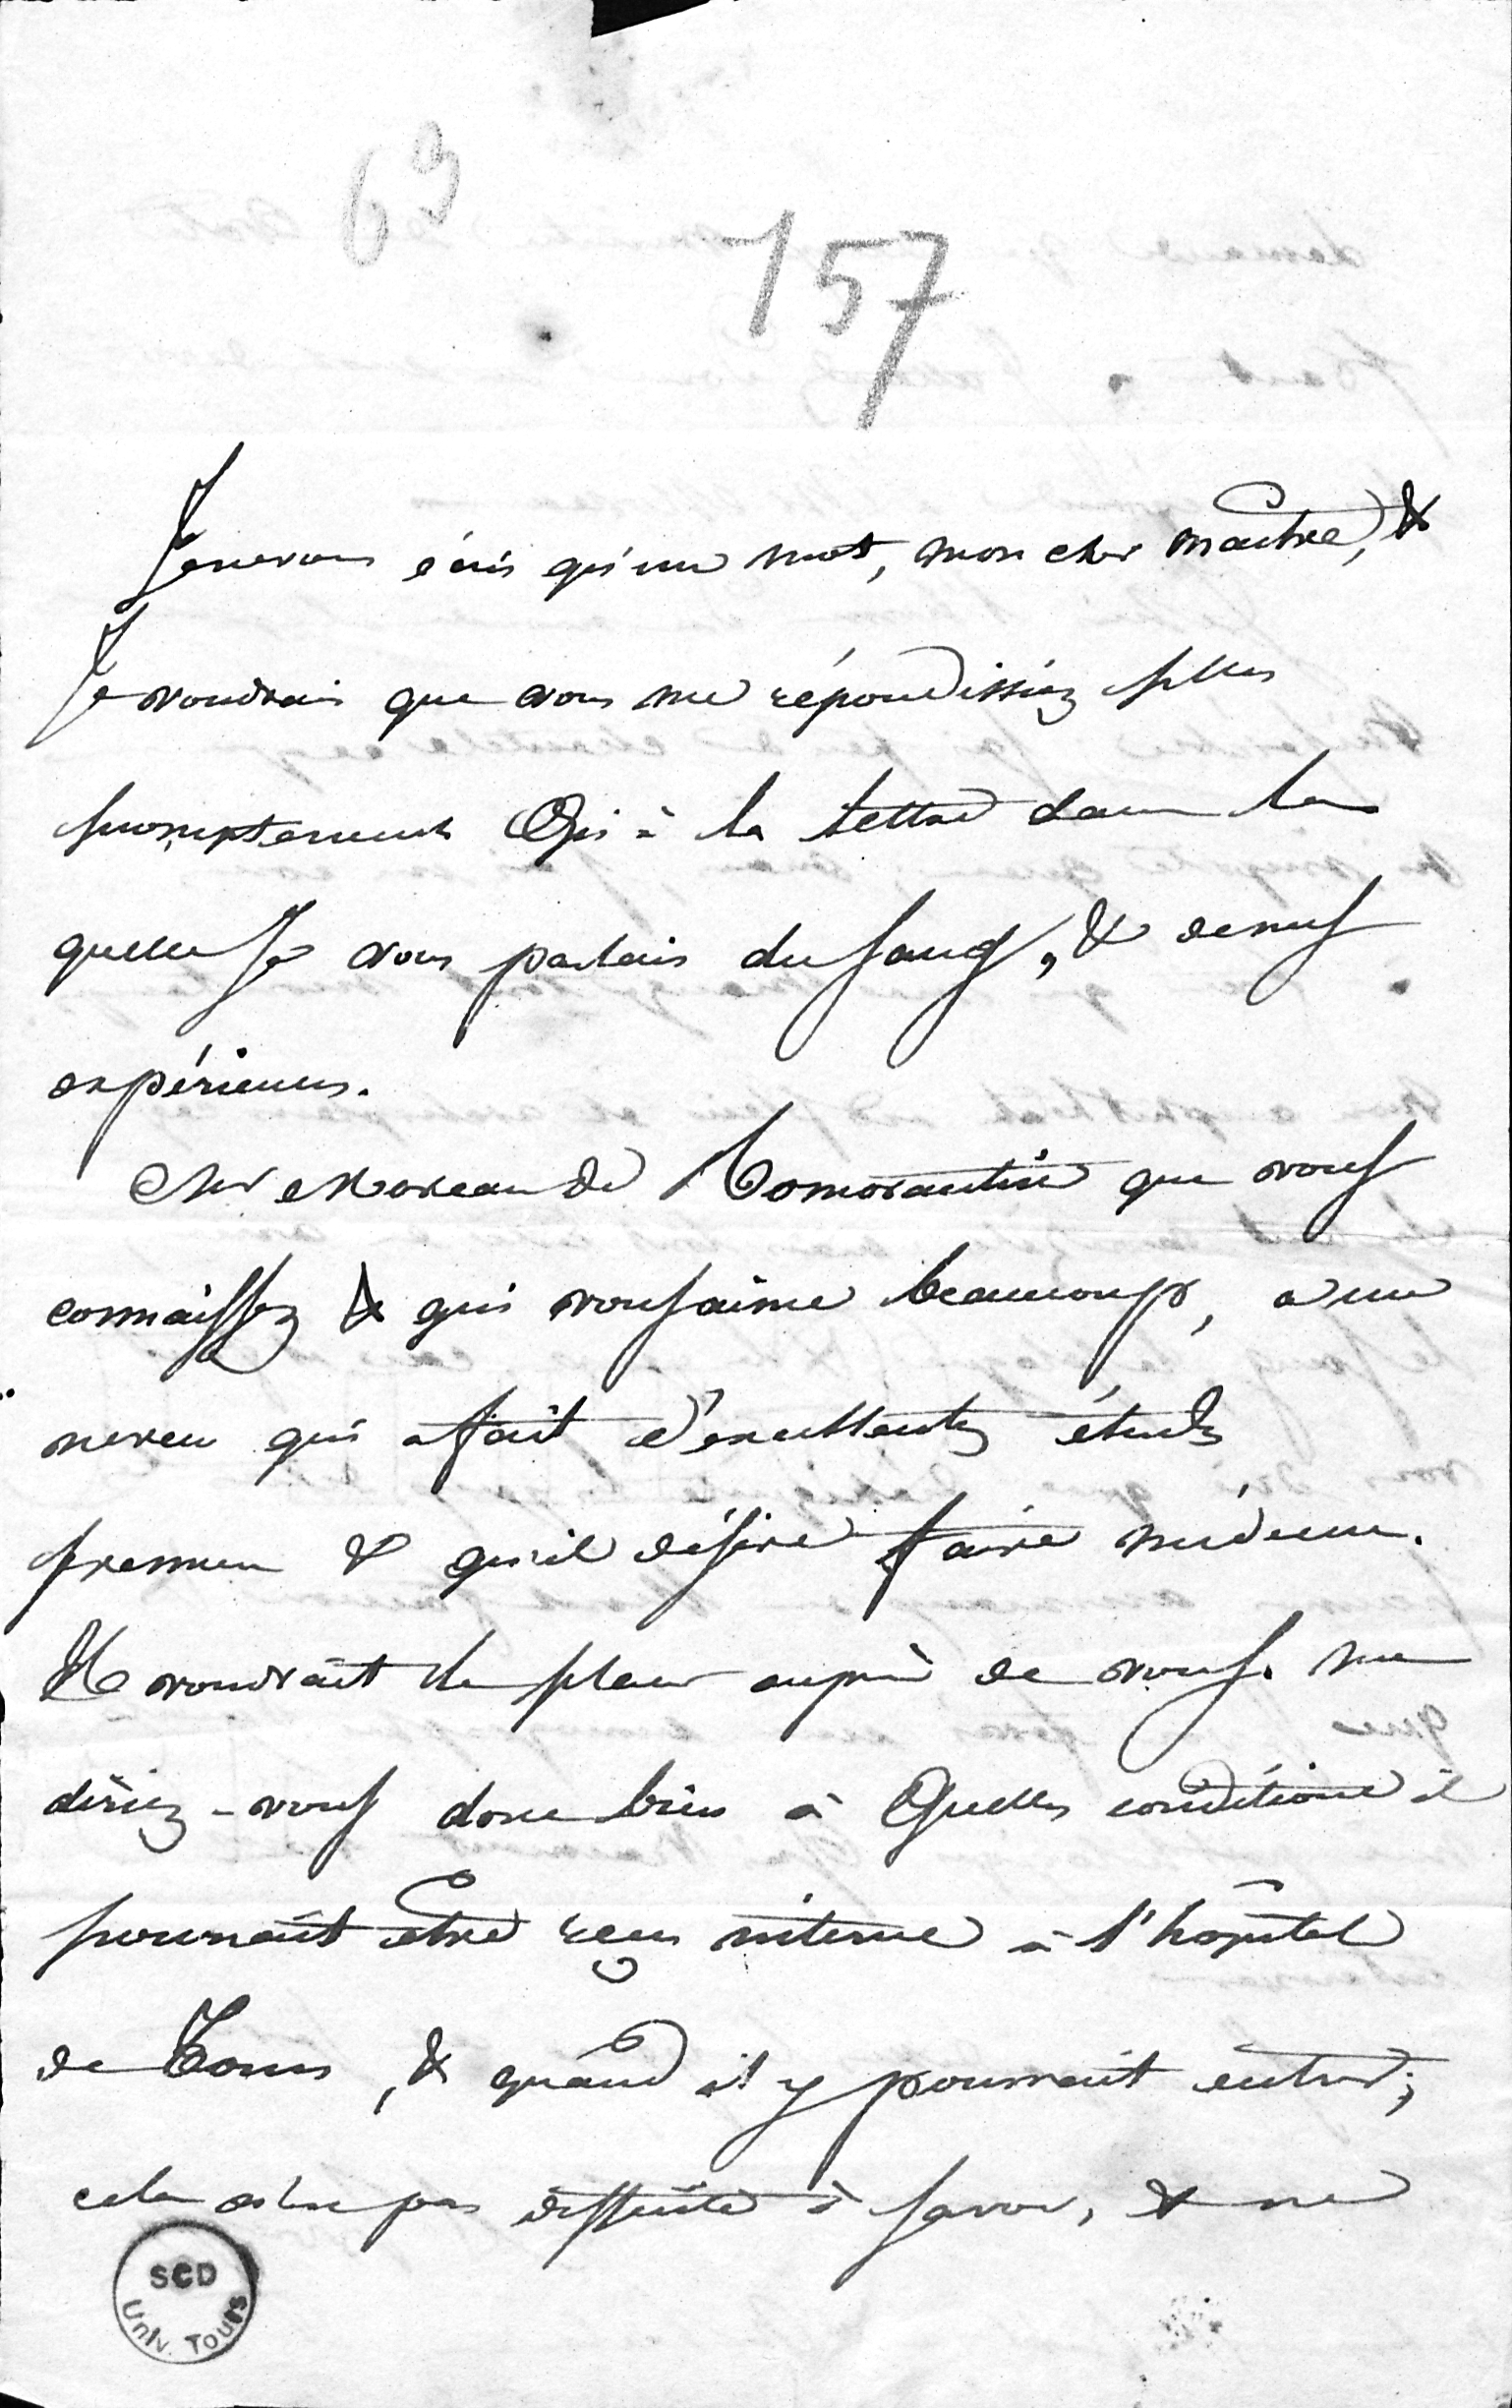 69
157
Je ne vous écris qu'un mot, mon cher maître, &
Je voudrais que vous me répondissiez plus
promptement Qu'à la lettre dans la
quelle Je vous parlais du sang, & de nos
expériences.
Cher Moreau de Romorantin que vous
connaissez & qui vous aime beaucoup, a un
neveu qui a fait d'excellentes études
premieres & qu'il désire faire médecin.
Il voudrait le placer auprès de vous. me
diriez-vous donc bien à Quelles conditions il
pourrait être reçu interne à l'hôpital
de Tours, & quand il y pourrait entrer;
cela n'est pas difficile à savoir, & ne
SCD
Univ. Tours